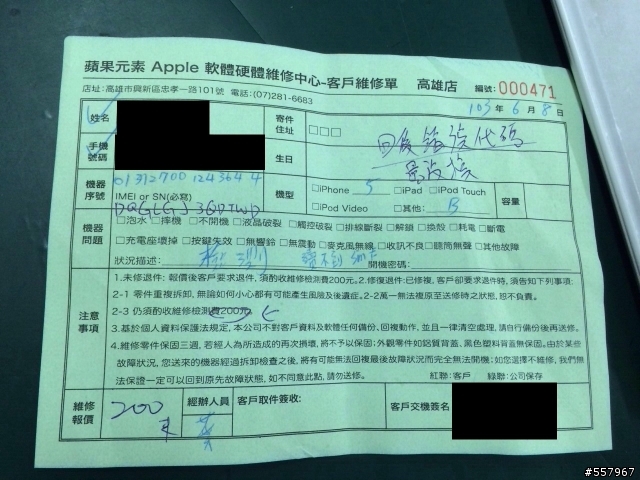 蘋果元素 Apple 軟體硬體維修中心-客戶維修單 高雄店 編號:000471
店址:高雄市興新區忠孝一路101號 電話:(07)281-6683
103年6月8日
姓名
寄件住址 □□□
手機號碼
生日
回復錯誤代碼
機器序號
IMEI or SN(必寫)
機型 □iPhone 5 □iPad □iPod Touch
□iPod Video □其他: B
容量
機器問題 □泡水 □摔機 □不開機 □液晶破裂 □觸控破裂 □排線斷裂 □解鎖 □換殼 □耗電 □斷電
□充電座壞掉 □按鍵失效 □無響鈴 □無震動 □麥克風無線 □收訊不良 □聽筒無聲 □其他故障
狀況描述: 檢測 開機密碼:
注意事項
1.未修退件: 報價後客戶要求退件, 須酌收維修檢測費200元。2.修復退件:已修複, 客戶卻要求退件時, 須告知下列事項:
2-1 零件重複拆卸, 無論如何小心都有可能產生風險及後遺症。2-2萬一無法複原至送修時之狀態, 恕不負責.
2-3 仍須酌收維修檢測費200元。
3.基於個人資料保護法規定, 本公司不對客戶資料及軟體任何備份、回複動作, 並且一律清空處理, 請自行備份後再送修。
4.維修零件保固三週, 若經人為所造成的再次損壞, 將不予以保固; 外觀零件如鋁質背蓋、黑色塑料背蓋無保固。由於某些
故障狀況, 您送來的機器經過拆卸檢查之後, 將有可能無法回複最後故障狀況而完全無法開機; 如您選擇不維修, 我們無
法保證一定可以回到原先故障狀態, 如不同意此點, 請勿送修。 紅聯:客戶 綠聯:公司保存
維修報價 200 未
經辦人員
客戶取件簽收:
客戶交機簽名
#557967